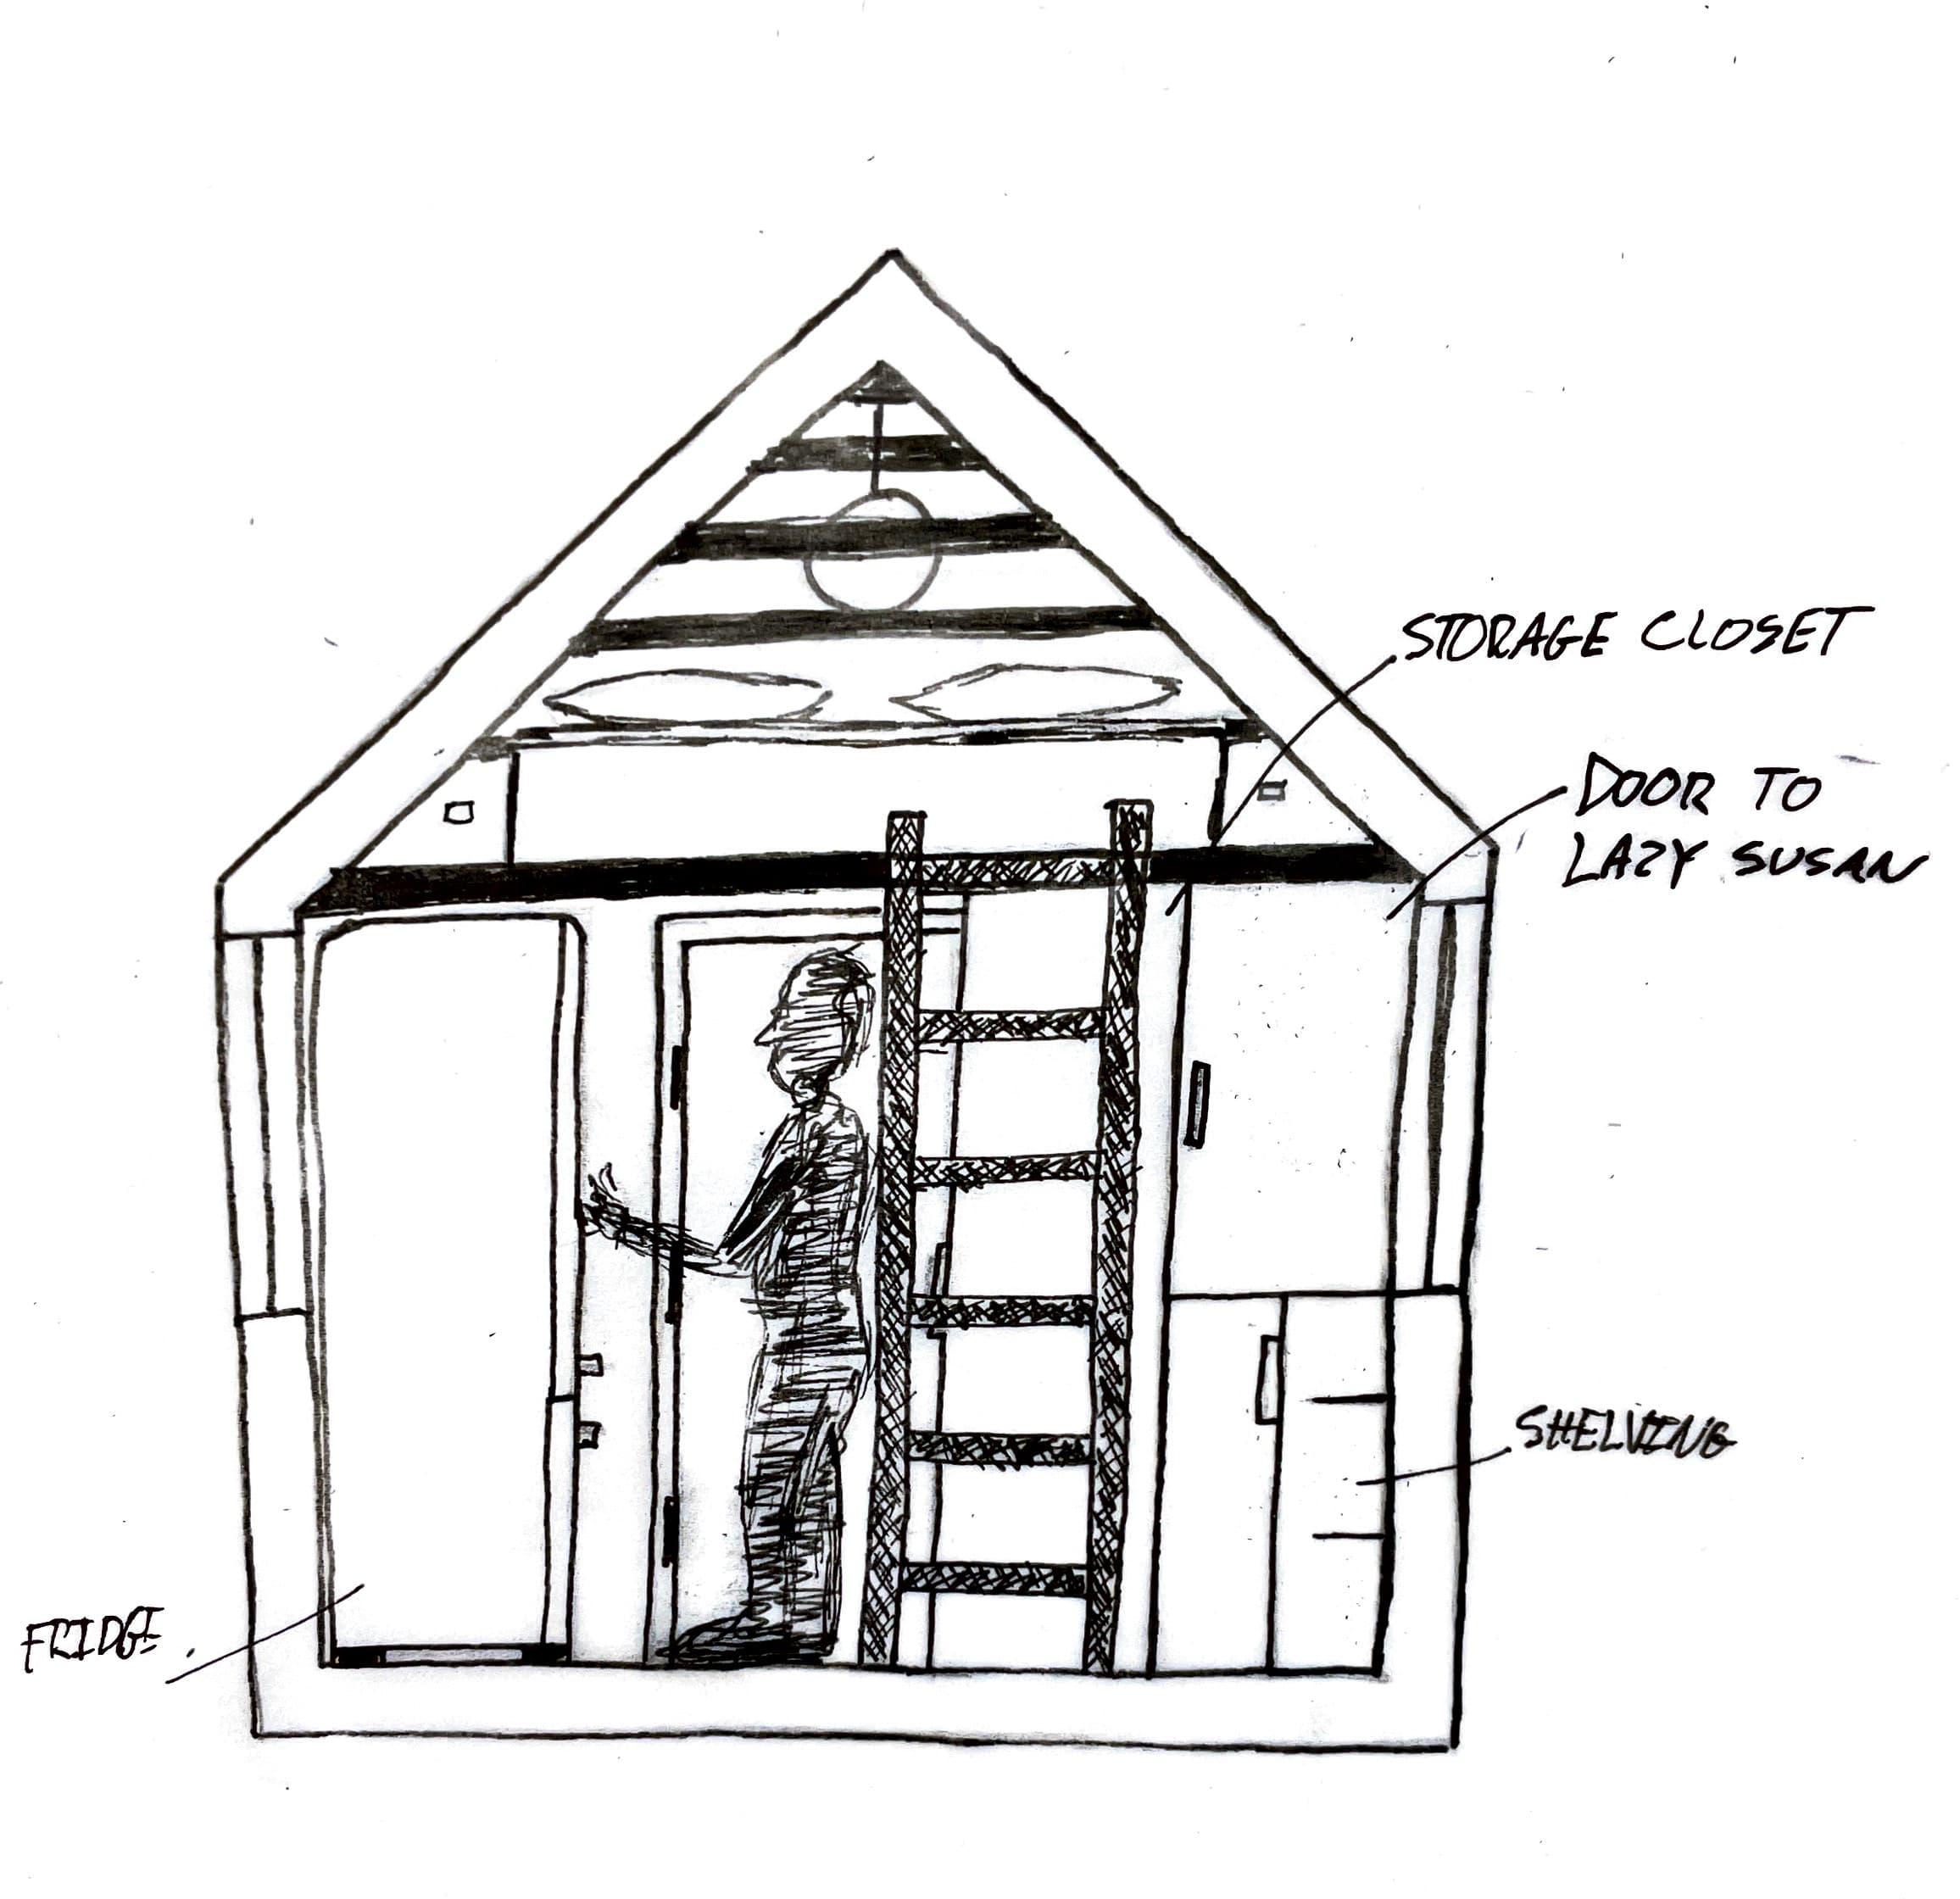 STORAGE CLOSET
DOOR TO
LAZY SUSAN
SHELVING
FRIDGE